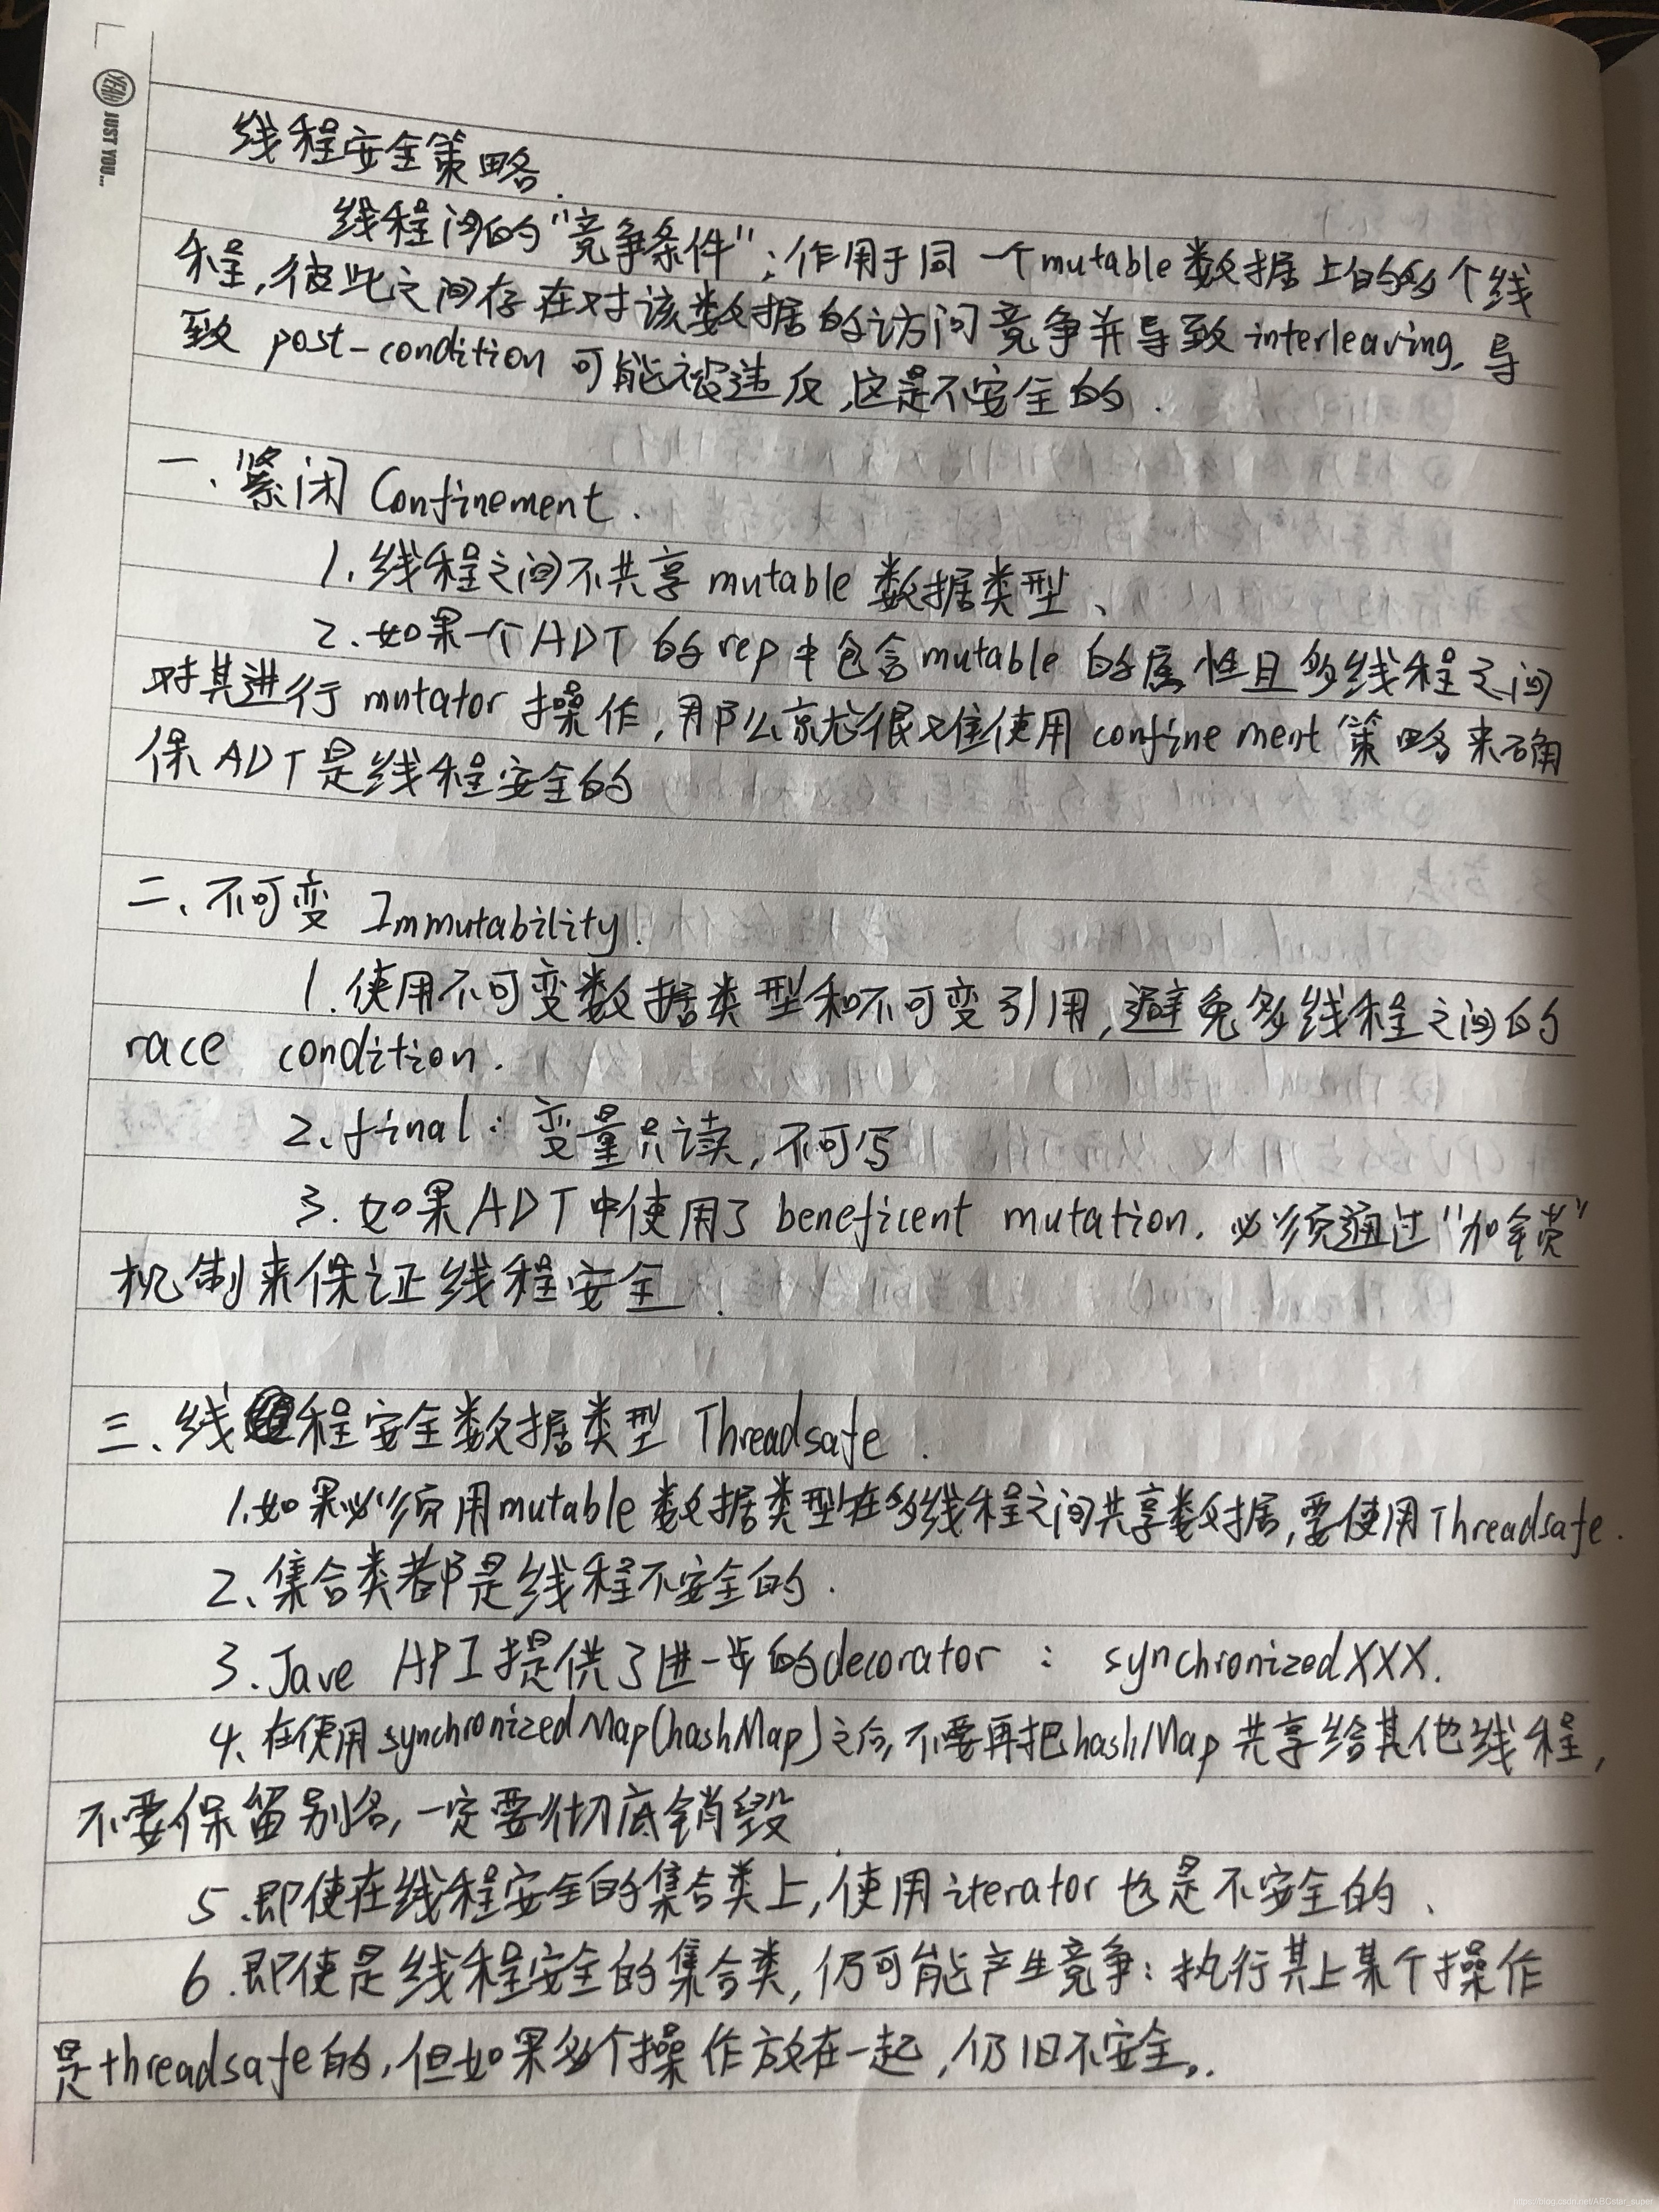 YEAH JUST YOU...
线程安全策略.
线程间的“竞争条件”:作用于同一个mutable数据上的多个线
程,彼此之间存在对该数据的访问竞争并导致interleaving,导
致 post-condition 可能被违反,这是不安全的.
一、紧闭 Confinement.
1.线程之间不共享 mutable 数据类型、
2.如果一个ADT的rep中包含mutable的属性且多线程之间
对其进行mutator操作,那么就很难使用confinement策略来确
保ADT是线程安全的
二、不可变 Immutability.
1.使用不可变数据类型和不可变引用,避免多线程之间的
race condition.
2、final:变量只读,不可写
3.如果ADT中使用了 beneficent mutation,必须通过“加锁”
机制来保证线程安全.
三、线程安全数据类型 Threadsafe.
1.如果必须用mutable数据类型在多线程之间共享数据,要使用Threadsafe.
2、集合类都是线程不安全的.
3.Jave API提供了进一步的decorator: synchronizedXXX.
4、在使用synchronizedMap(hashMap)之后,不要再把hashMap共享给其他线程,
不要保留别名,一定要彻底销毁.
5.即使在线程安全的集合类上,使用iterator也是不安全的、
6.即使是线程安全的集合类,仍可能产生竞争:执行其上某个操作
是threadsafe的,但如果多个操作放在一起,仍旧不安全。.
https://blog.csdn.net/ABCstar_super